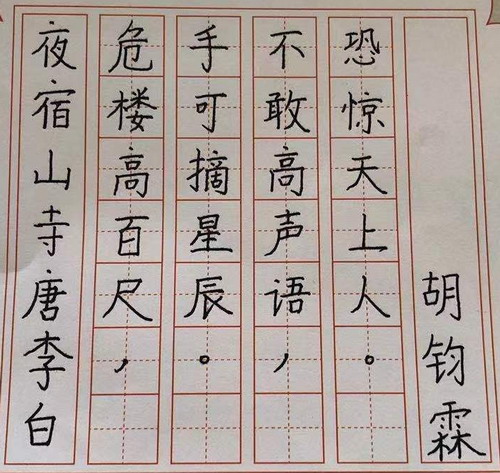 夜宿山寺唐李白
危楼高百尺，
手可摘星辰。
不敢高声语，
恐惊天上人。
胡钧霖